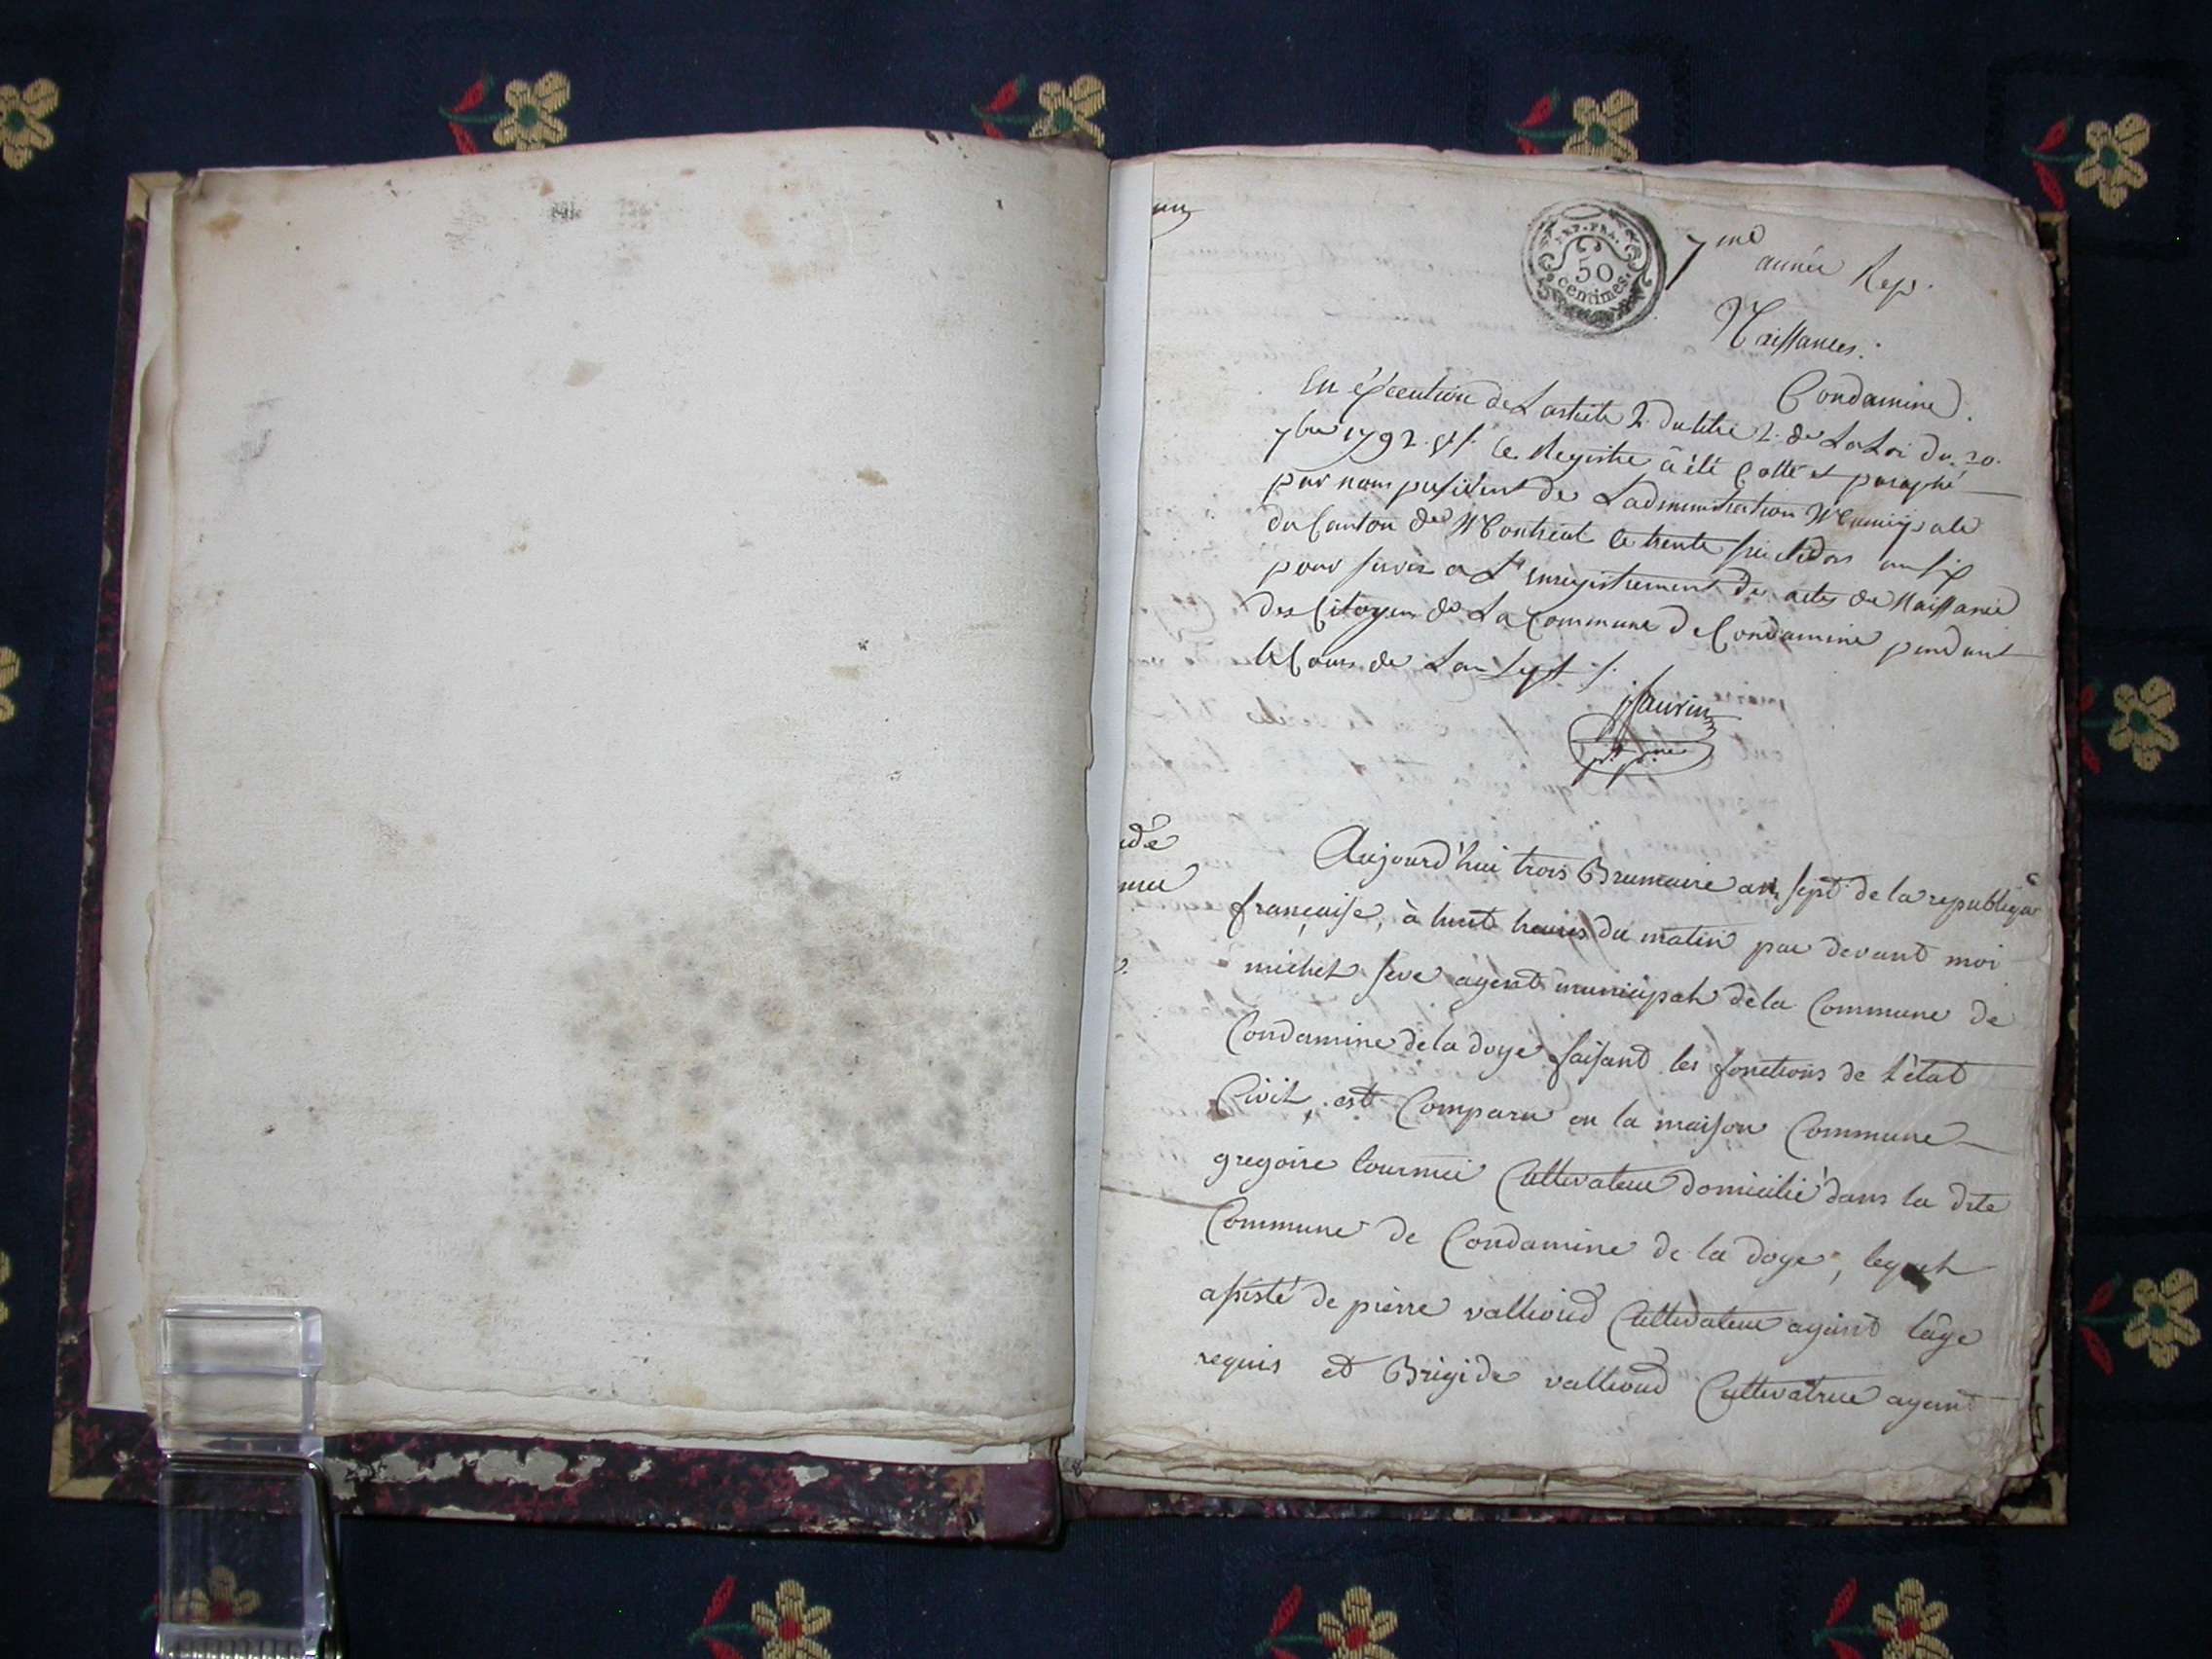 REP. FRA.
50
centimes.
7me année Rep.
Naissances.
Condamine.
En éxécution de L'article 2. du titre 2. de La Loi du 20.
7bre 1792. Le Registre à été Cotté et paraphé
par nous president de L'administration Municipale
du Canton de Montreal le trente fructidor an six
pour servir a L'enregistrement des actes de Naissance
des Citoyens de La Commune de Condamine pendant
le Cours de L'an Sept
Aujourd'hui trois Brumaire an sept de la republique
française, à huit heures du matin par devant moi
michel seve agent municipal de la Commune de
Condamine de la doye faisant les fonctions de l'état
Civil, est Comparu en la maison Commune
gregoire tournier Cultivateur domicilié dans la dite
Commune de Condamine de la doye, lequel
assisté de pierre vallioud Cultivateur ayant l'âge
requis et Brigide vallioud Cultivatrice ayant